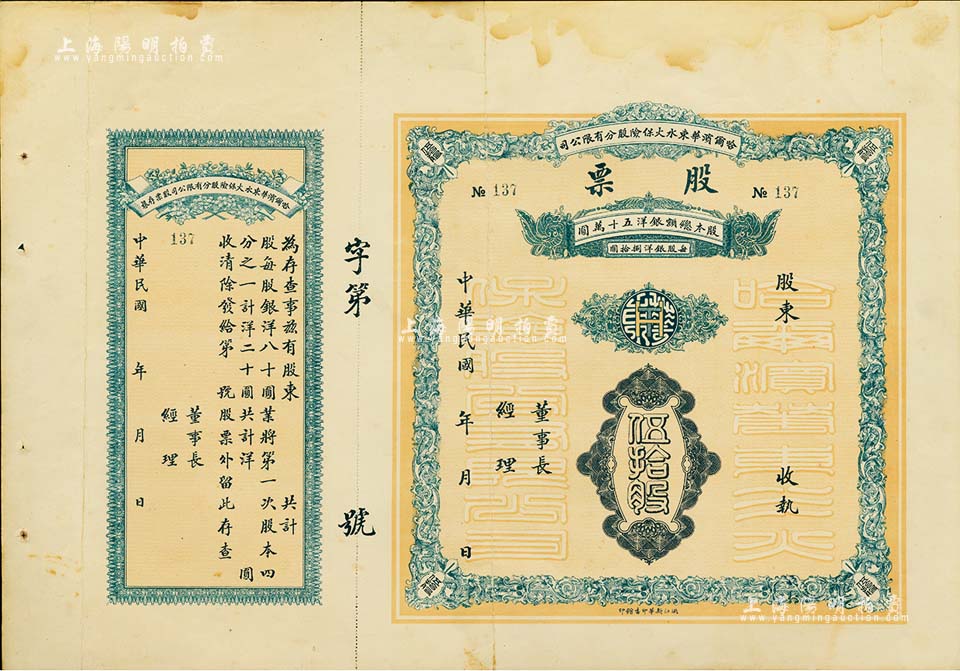 上海陽明拍賣
www.yangmingauction.com
哈爾濱華東水火保險股分有限公司
股票
№ 137
№ 137
股本總額銀洋五十萬圓
每股銀洋捌拾圓
股東 收執
哈爾濱華東水火
保險股分有限公司
伍拾股
董事長
經理
中華民國 年 月 日
字第 號
哈爾濱華東水火保險股分有限公司股票存根
為存查事茲有股東 共計
股每股銀洋八十圓業將第一次股本四
分之一計洋二十圓共計洋 圓
收清除發給第 號股票外留此存查
董事長
經理
137
中華民國 年 月 日
上海陽明拍賣
www.yangmingauction.com
上海陽明拍賣
www.yangmingauction.com